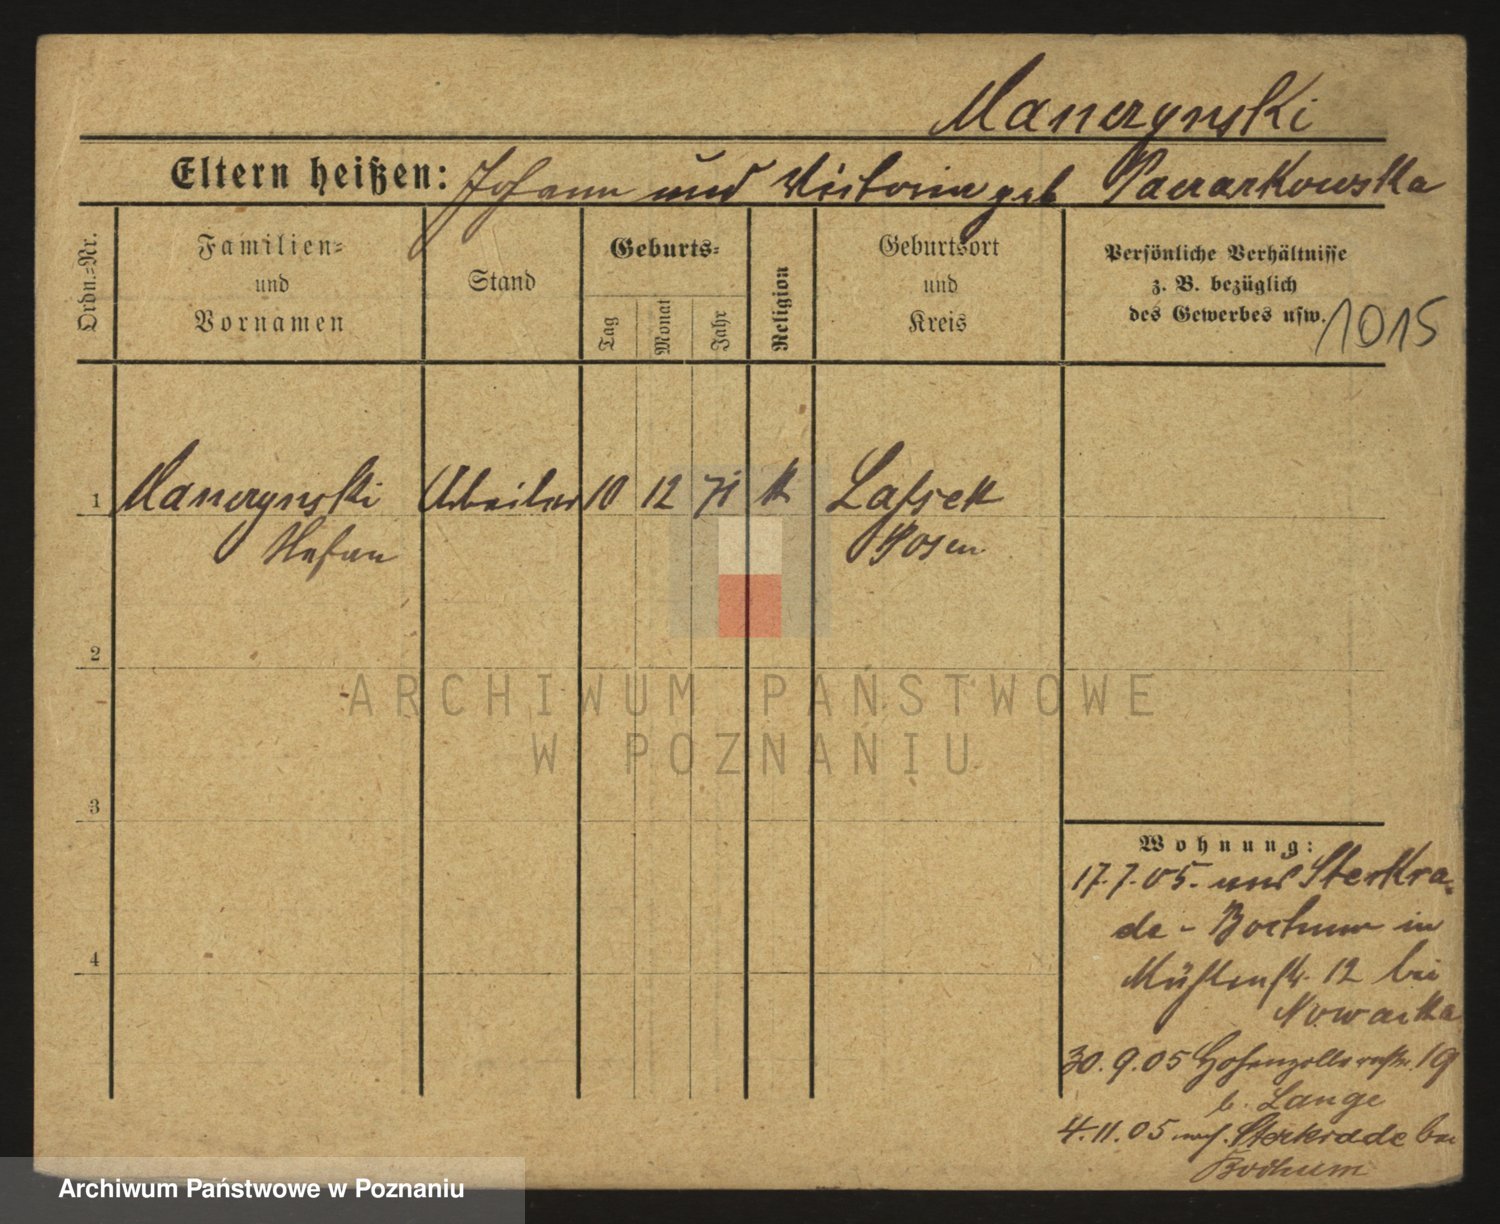 Manczynski
Eltern heißen: Johann und Victoria geb Paczarkowska
Ordn.=Nr.
Familien=
und
Vornamen
Stand
Geburts=
Tag
Monat
Jahr
Religion
Geburtsort
und
Kreis
Persönliche Verhältnisse
z. B. bezüglich
des Gewerbes usw.
1015
1 Manczynski Arbeiter 10 12 71 k Lassek
Stefan Posen
2
ARCHIWUM PAŃSTWOWE
W POZNANIU
3
4
Wohnung:
17.7.05. aus Sterkra-
de - Bochum in
Mühlenstr. 12 bei
Nowacka
30.9.05 Hohenzollernstr. 19
b. Lange
4.11.05 nach Sterkrade bei
Bochum
Archiwum Państwowe w Poznaniu